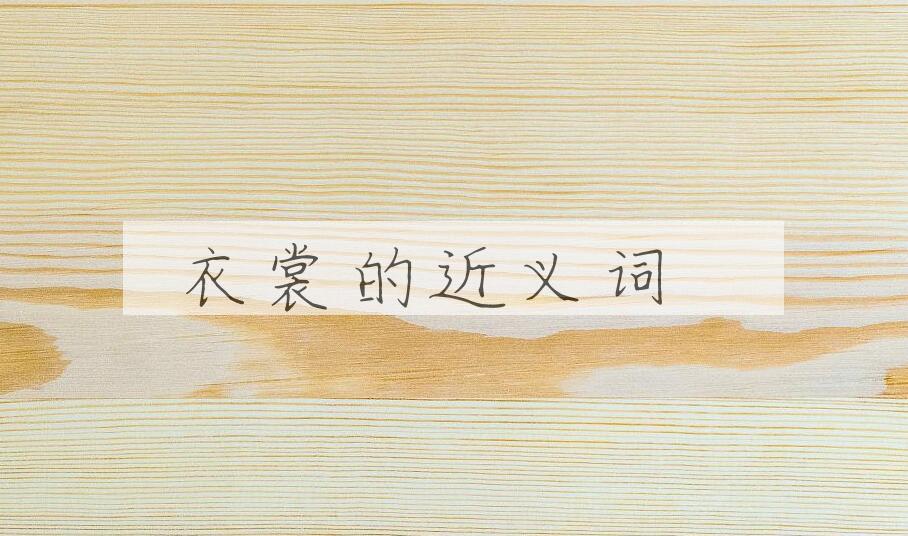 衣裳的近义词